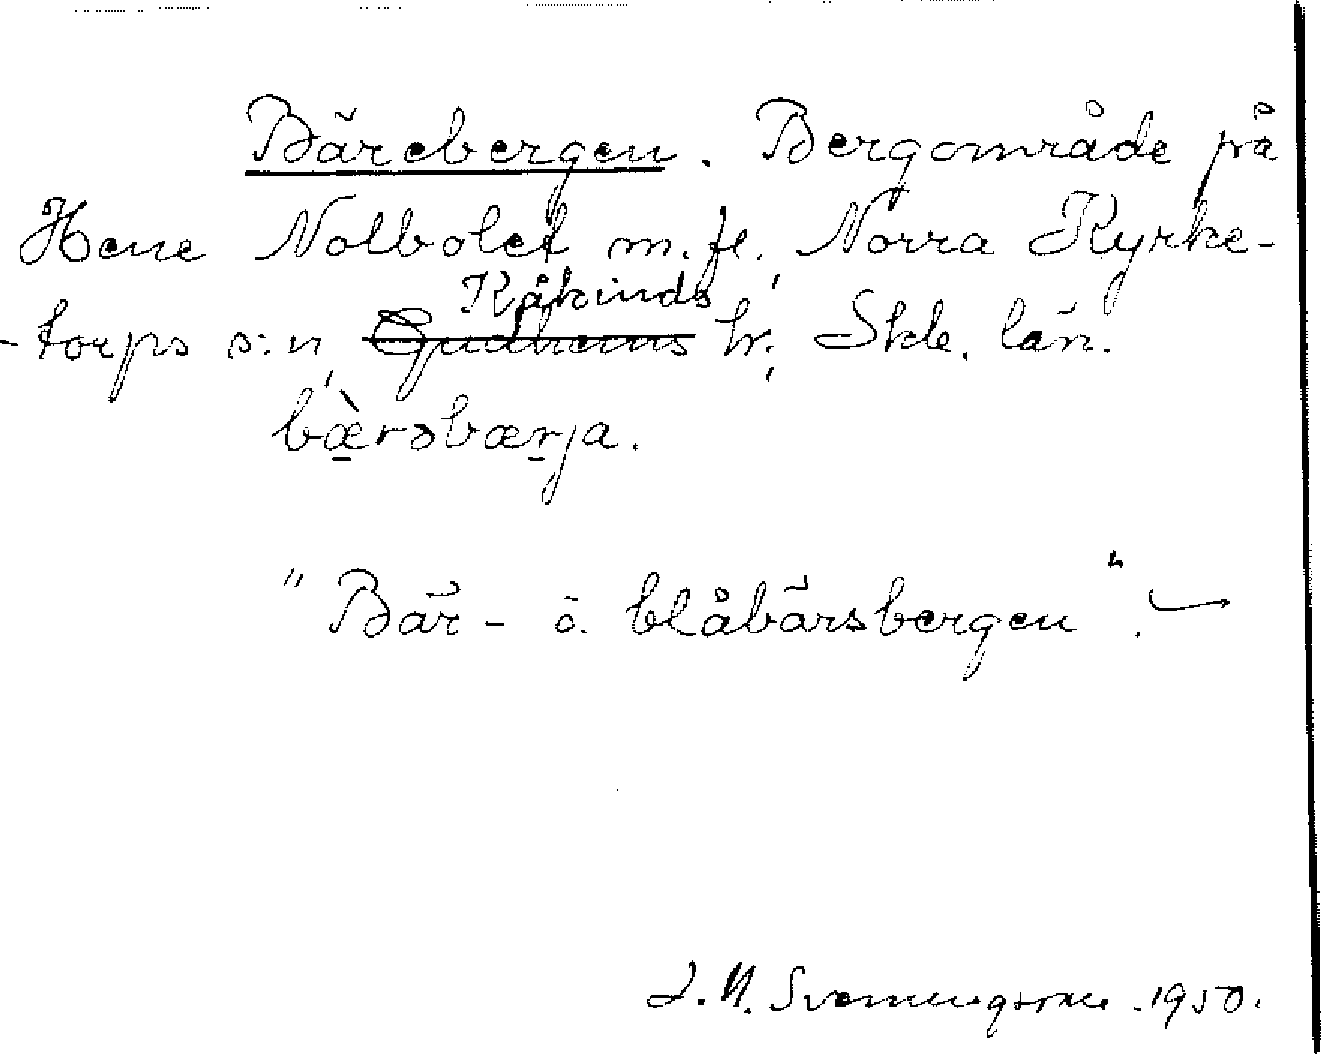 Bärebergen. Bergområde på
Hene Nolbolet m.fl., Norra Kyrke-
Kåkinds
-torps s:n, Gudhems hr., Skbg. län.
bæ̀rəbærja.
"Bär- o. blåbärsbergen".
J. N. Svenningsson 1950.